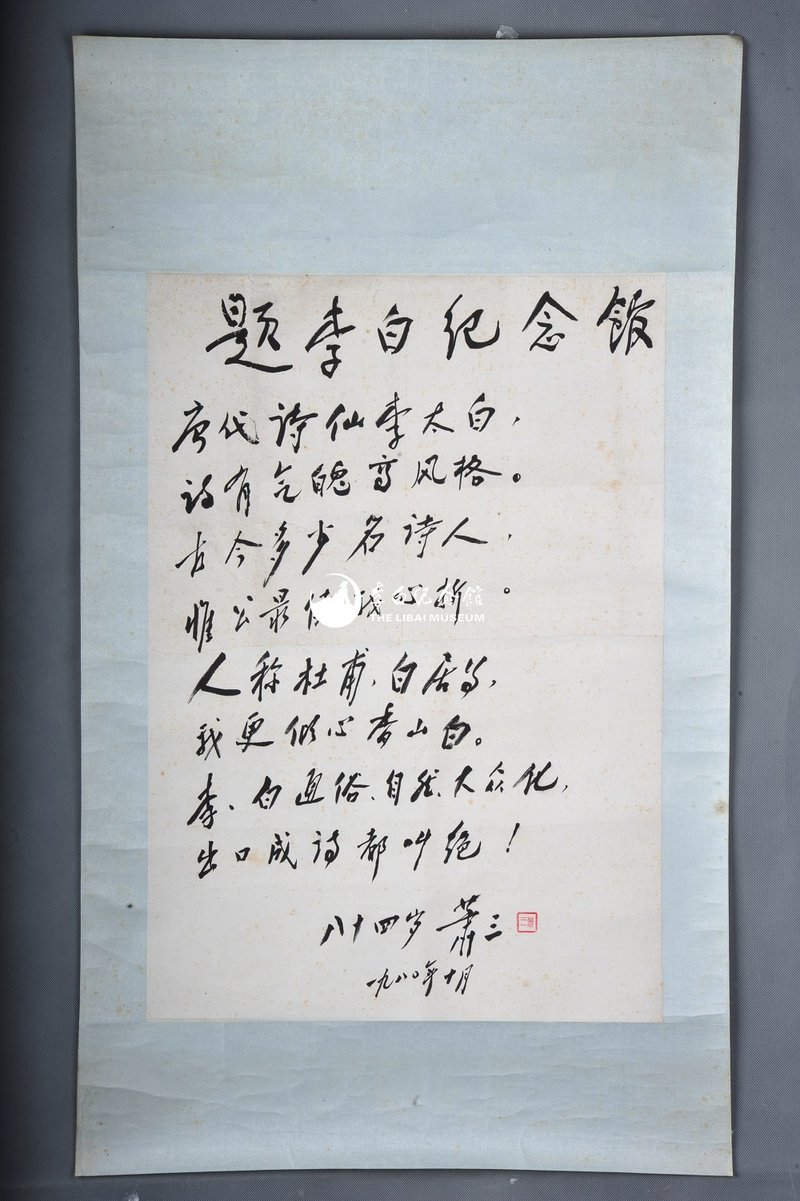 题李白纪念馆
唐代诗仙李太白，
诗有气魄高风格。
古今多少名诗人，
惟公最使我心折。
李白纪念馆
THE LIBAI MUSEUM
人称杜甫、白居易，
我更倾心香山白。
李、白通俗、自然、大众化，
出口成诗都叫绝！
八十四岁 萧三
一九八〇年十月